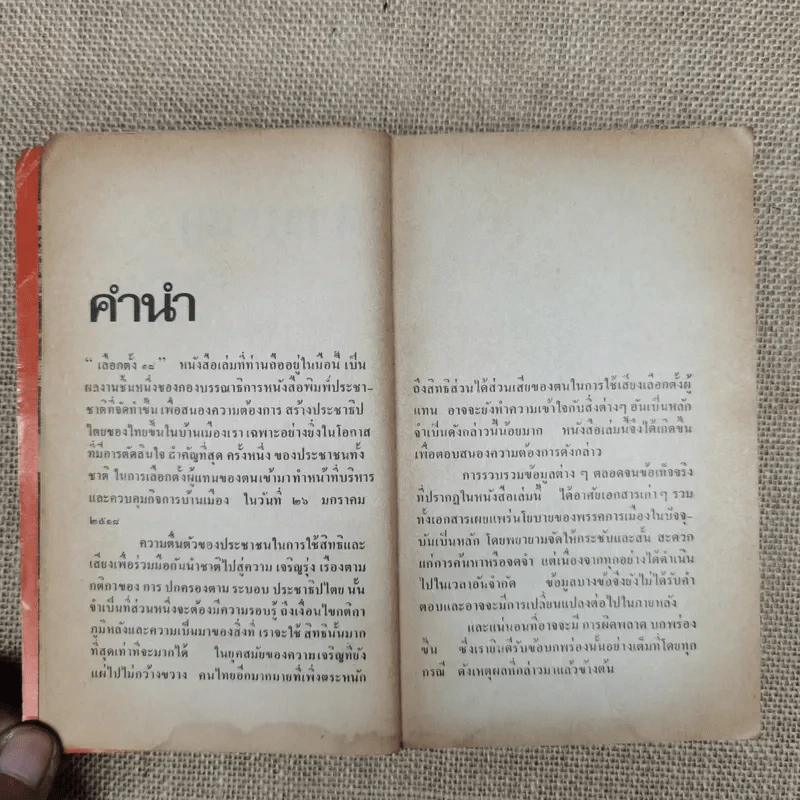 คำนำ
“ เลือกตั้ง ๑๘ ” หนังสือเล่มที่ท่านถืออยู่ในมือนี้ เป็น
ผลงานชิ้นหนึ่งของกองบรรณาธิการหนังสือพิมพ์ประชา-
ชาติที่จัดทำขึ้น เพื่อสนองความต้องการ สร้างประชาธิป
ไตยของไทยขึ้นในบ้านเมืองเรา เฉพาะอย่างยิ่งในโอกาส
ที่มีการตัดสินใจ สำคัญที่สุด ครั้งหนึ่ง ของประชาชนทั้ง
ชาติ ในการเลือกตั้งผู้แทนของตนเข้ามาทำหน้าที่บริหาร
และควบคุมกิจการบ้านเมือง ในวันที่ ๒๖ มกราคม
๒๕๑๘
ความตื่นตัวของประชาชนในการใช้สิทธิและ
เสียงเพื่อร่วมมือกันนำชาติไปสู่ความ เจริญรุ่ง เรืองตาม
กติกาของ การ ปกครองตาม ระบอบ ประชาธิปไตย นั้น
จำเป็นที่ส่วนหนึ่งจะต้องมีความรอบรู้ ถึงเงื่อนไขกติกา
ภูมิหลังและความเป็นมาของสิ่งที่ เราจะใช้ สิทธินั้นมาก
ที่สุดเท่าที่จะมากได้ ในยุคสมัยของความเจริญที่ยัง
แผ่ไปไม่กว้างขวาง คนไทยอีกมากมายที่เพิ่งตระหนัก
ถึงสิทธิส่วนได้ส่วนเสียของตนในการใช้เสียงเลือกตั้งผู้
แทน อาจจะยังทำความเข้าใจกับสิ่งต่างๆ อันเป็นหลัก
จำเป็นดังกล่าวนี้น้อยมาก หนังสือเล่มนี้จึงได้เกิดขึ้น
เพื่อตอบสนองความต้องการดังกล่าว
การรวบรวมข้อมูลต่าง ๆ ตลอดจนข้อเท็จจริง
ที่ปรากฏในหนังสือเล่มนี้ ได้อาศัยเอกสารเก่าๆ รวม
ทั้งเอกสารเผยแพร่นโยบายของพรรคการเมืองในปัจจุ-
บันเป็นหลัก โดยพยายามจัดให้กระชับและสั้น สะดวก
แก่การค้นหาหรือจดจำ แต่เนื่องจากทุกอย่างได้ดำเนิน
ไปในเวลาอันจำกัด ข้อมูลบางข้อจึงยังไม่ได้รับคำ
ตอบและอาจจะมีการเปลี่ยนแปลงต่อไปในภายหลัง
และแน่นอนที่อาจจะมี การผิดพลาด บกพร่อง
ขึ้น ซึ่งเรายินดีรับข้อบกพร่องนั้นอย่างเต็มที่โดยทุก
กรณี ดังเหตุผลที่กล่าวมาแล้วข้างต้น